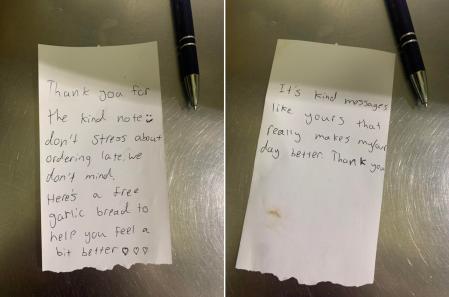 Thank you for
the kind note
don't stress about
ordering late, we
don't mind.
Here's a free
garlic bread to
help you feel a
bit better ♡♡♡
It's kind messages
like yours that
really makes my/our
day better. Thank you